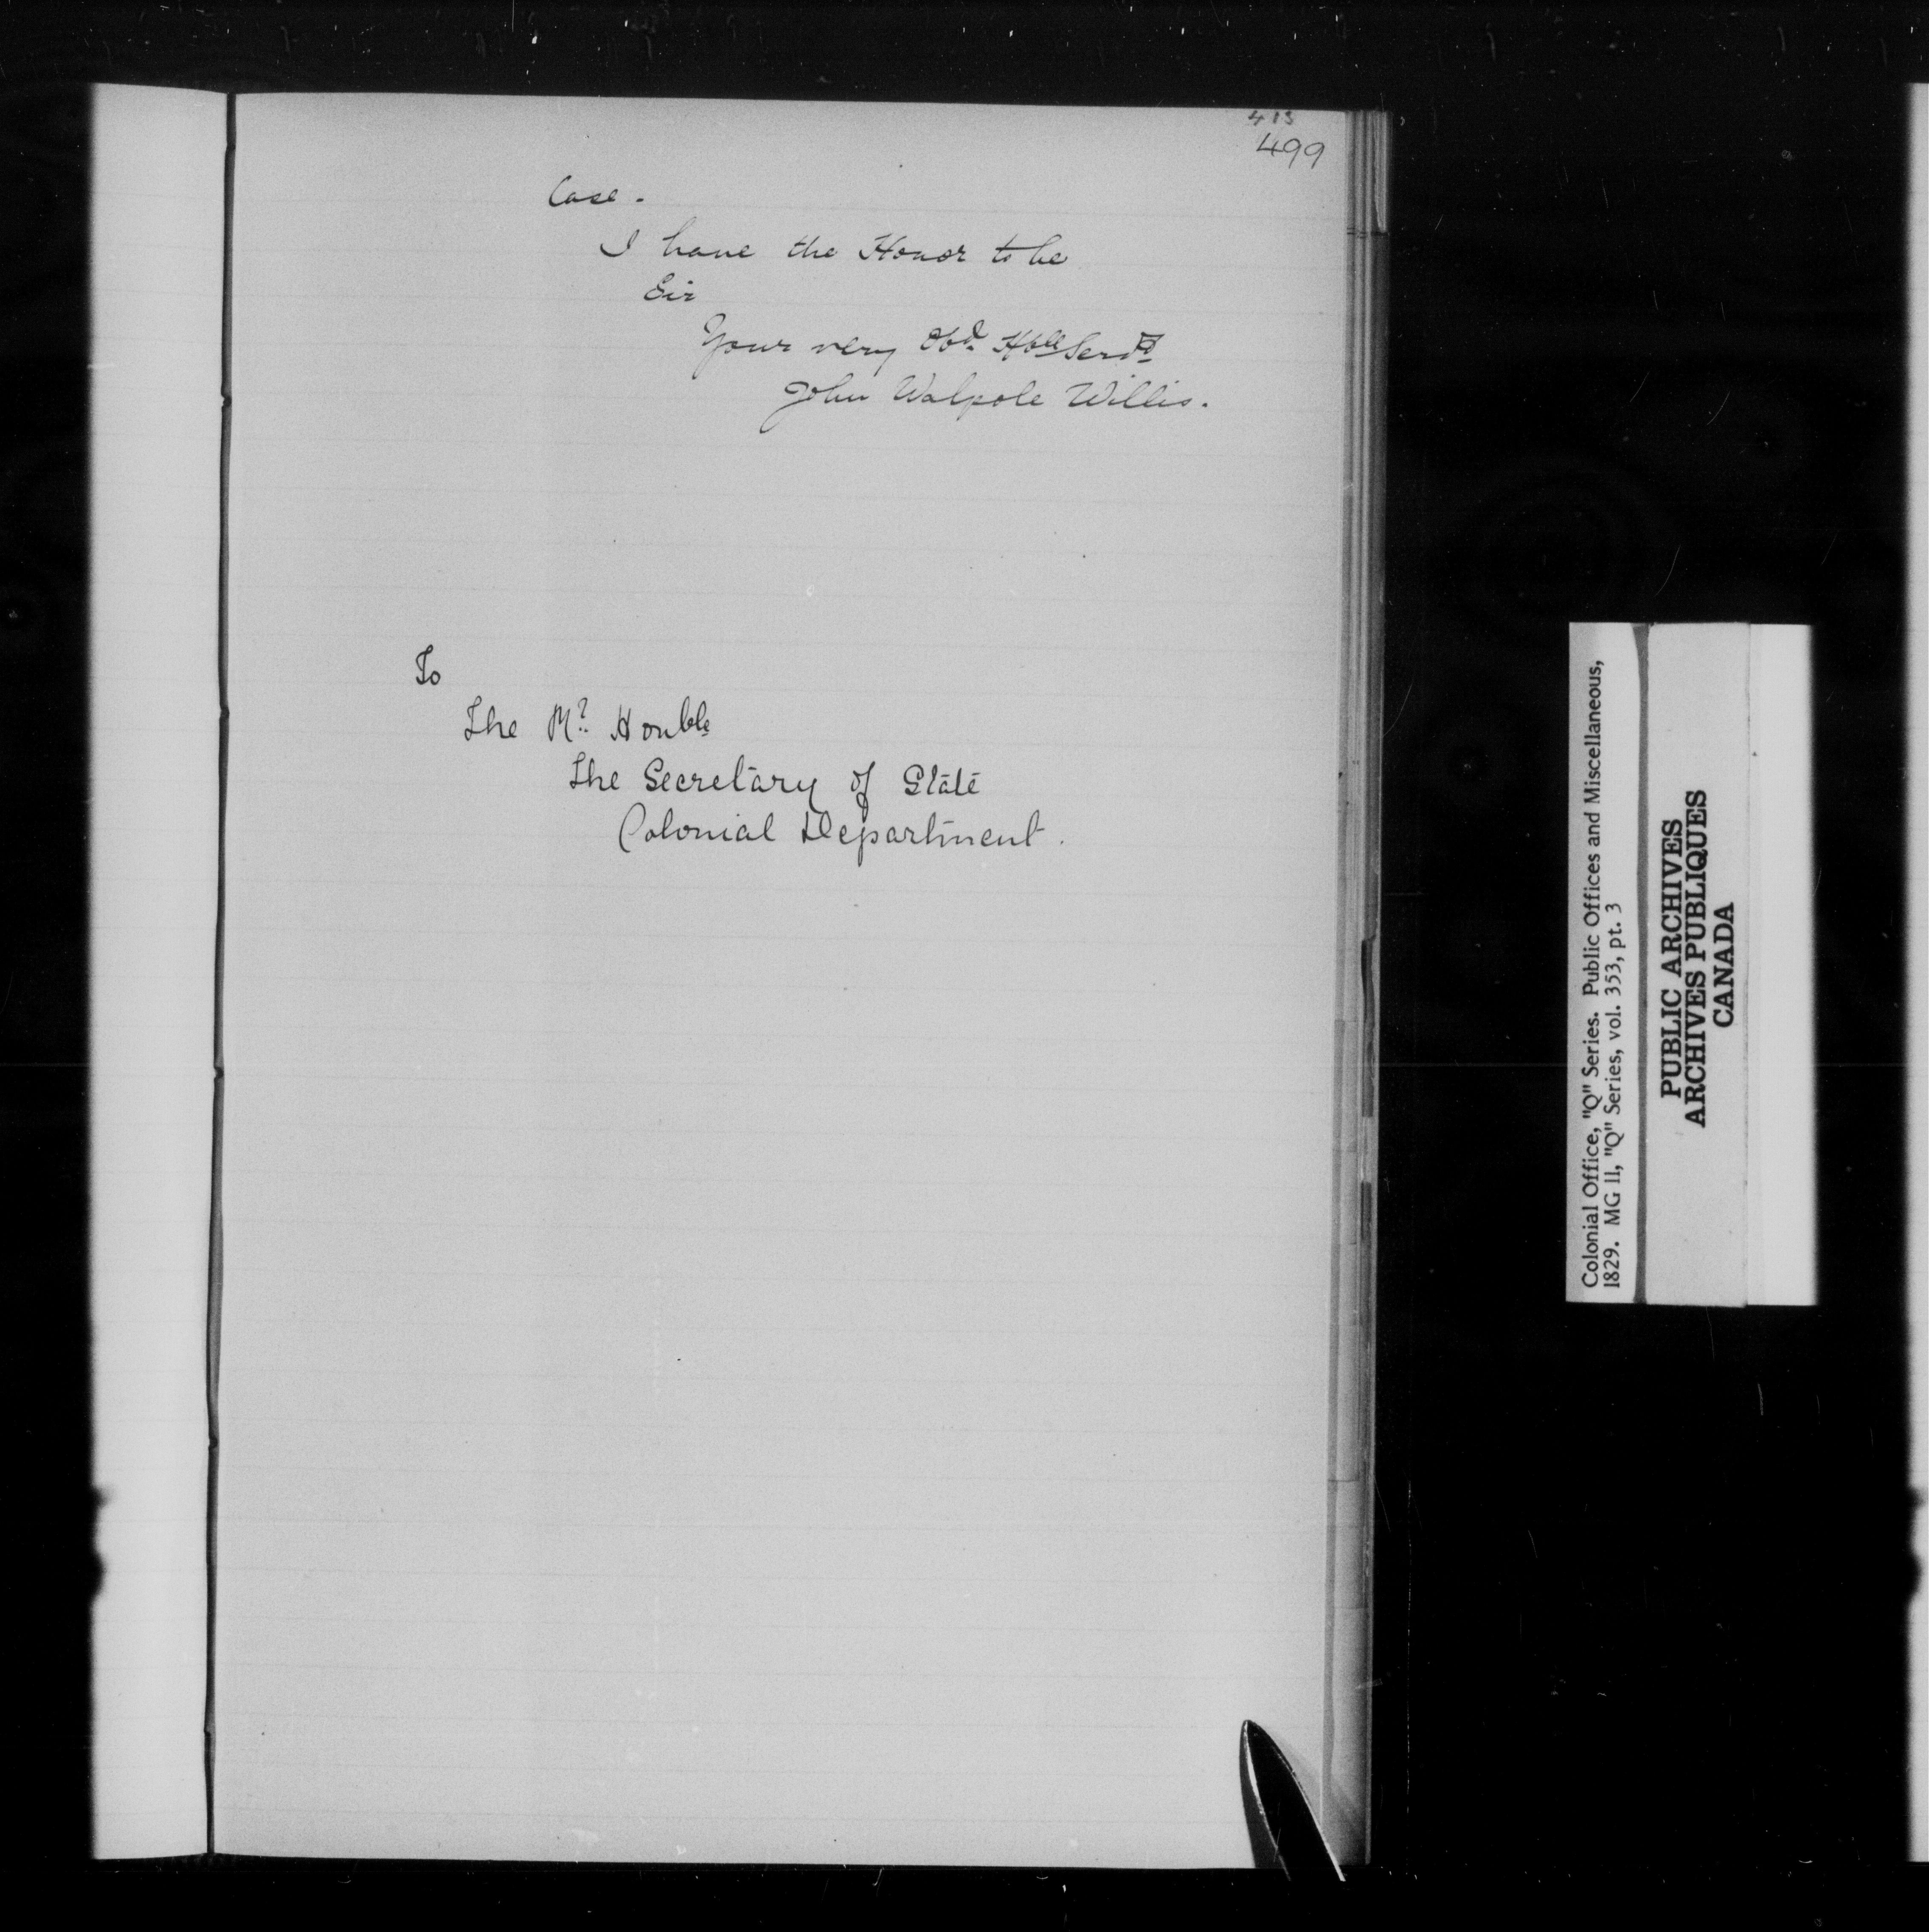 413
499
Case.
I have the Honor to be
Sir
Your very Obd. Hble Servt
John Walpole Willis.
To
The Rt. Honble
The Secretary of State
Colonial Department.
Colonial Office, "Q" Series. Public Offices and Miscellaneous,
1829. MG 11, "Q" Series, vol. 353, pt. 3
PUBLIC ARCHIVES
ARCHIVES PUBLIQUES
CANADA